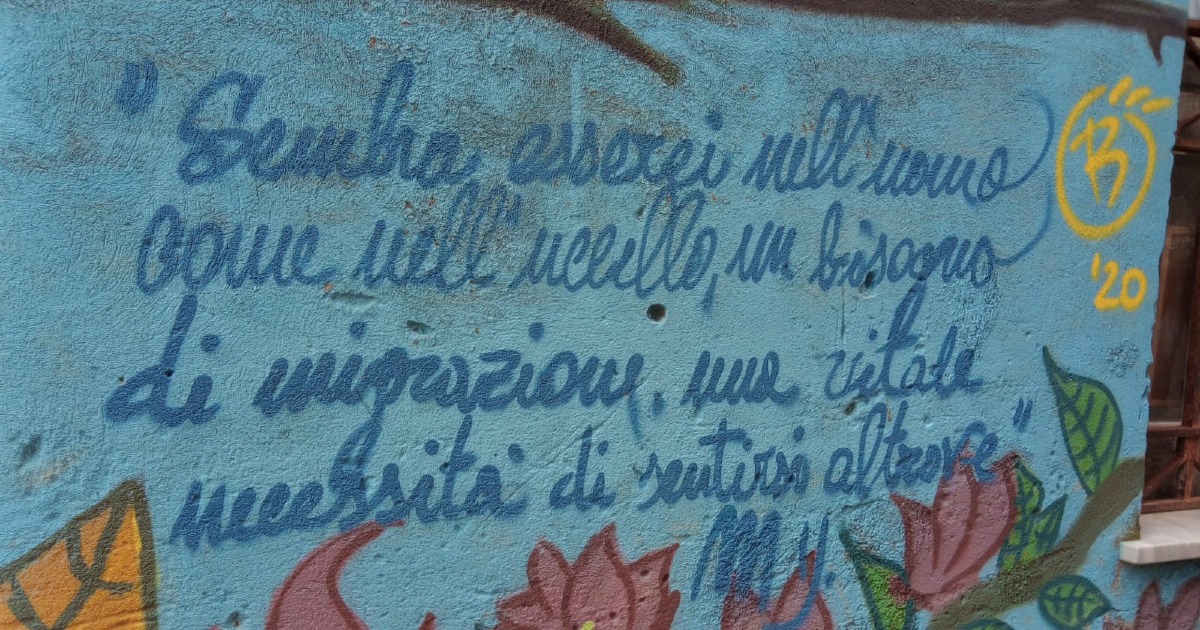 "Sembra esserci nell'uomo
come nell'uccello, un bisogno
di migrazione, una vitale
necessità di sentirsi altrove"
M.Y.
B
'20